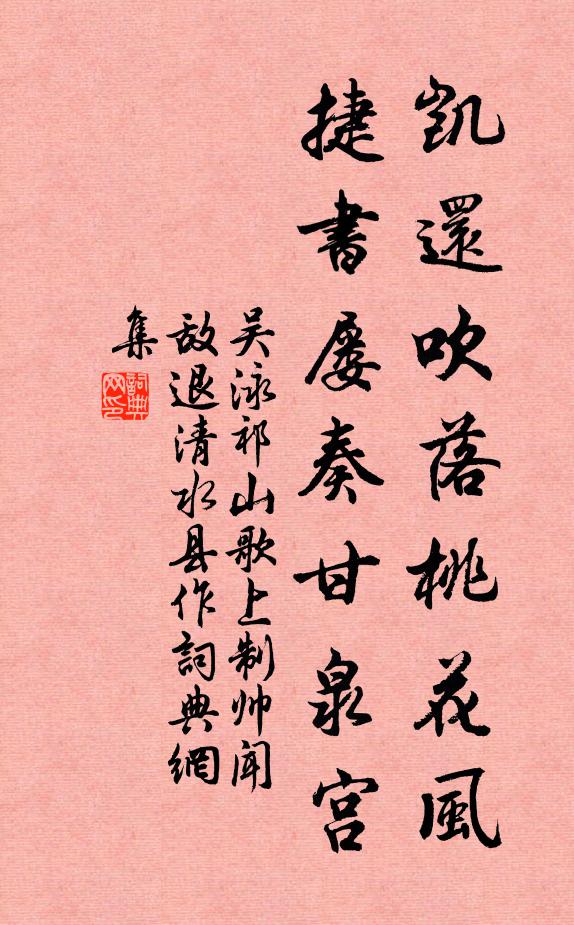 凯還吹落桃花風
捷書屡奏甘泉宫
吴泳祁山歌上制帅闻
敌退清水县作詞典網
集
詞典
网印